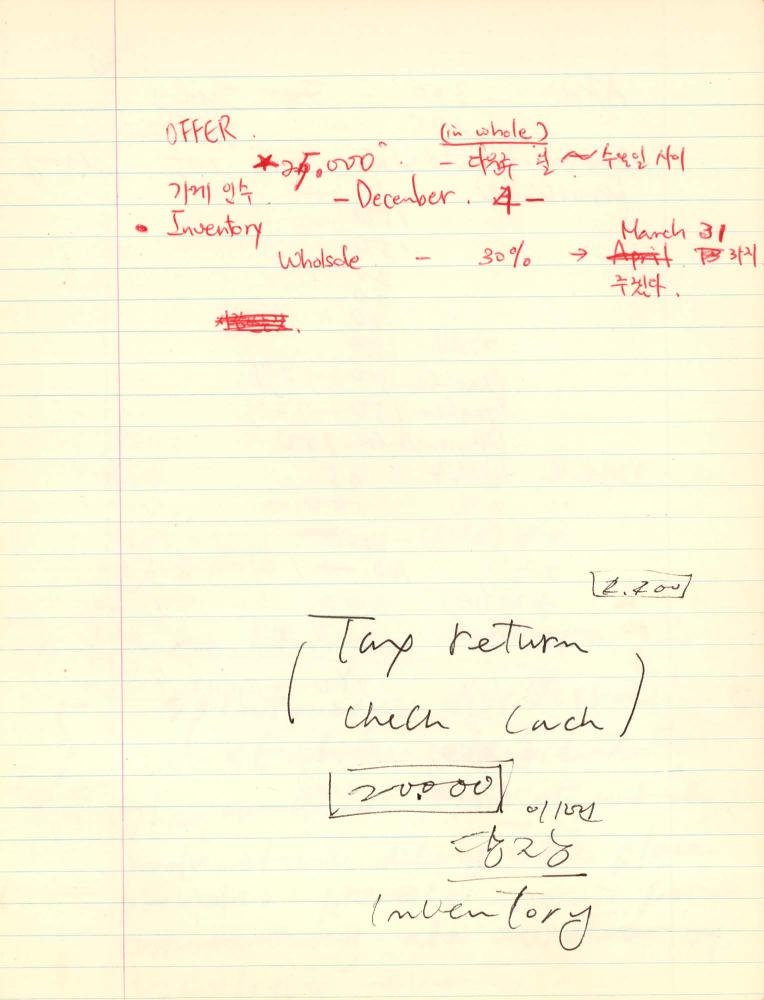 OFFER. (in whole)
★ 25,000 - 다음주 월 ~ 수요일 사이
가게 인수 - December. 4 -
• Inventory March 31
Wholsale - 30% → April 까지
주겠다.
2.200
(Tax return
check Cach)
20.000
당장
Inventory